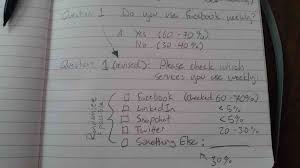 Question 1 Do you use Facebook weekly?
A. Yes (60-70%)
No (30-40%)
Question 1 (revised): Please check which
services you use weekly.
Randomize options
☐ Facebook (checked 60-70%)
☐ LinkedIn <5%
☐ Snapchat <5%
☐ Twitter 20-30%
☐ Something Else: ______
30%